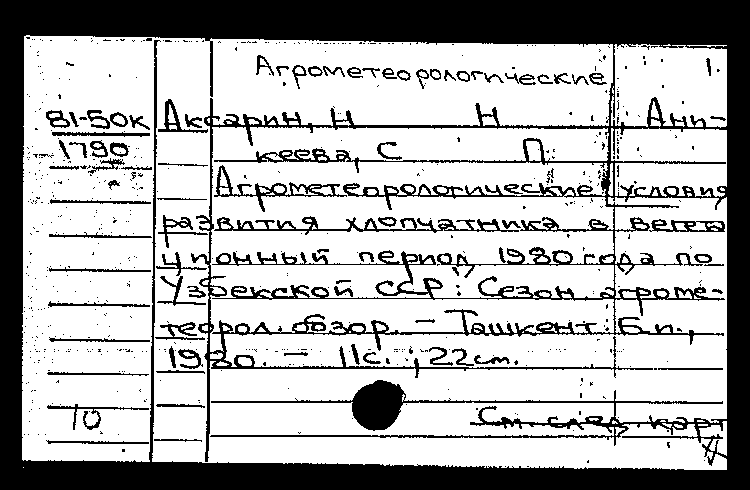 Агрометеорологические 1.
81-50к Аксарин, Н Н , Ани-
1790 кеева, С П
Агрометеорологические условия
развития хлопчатника в вегета
ционный период 1980 года по
Узбекской ССР: Сезон. агроме-
теорол. обзор. – Ташкент: Б.и.,
1980. – 11с. ; 22см.
10 См. след. карт